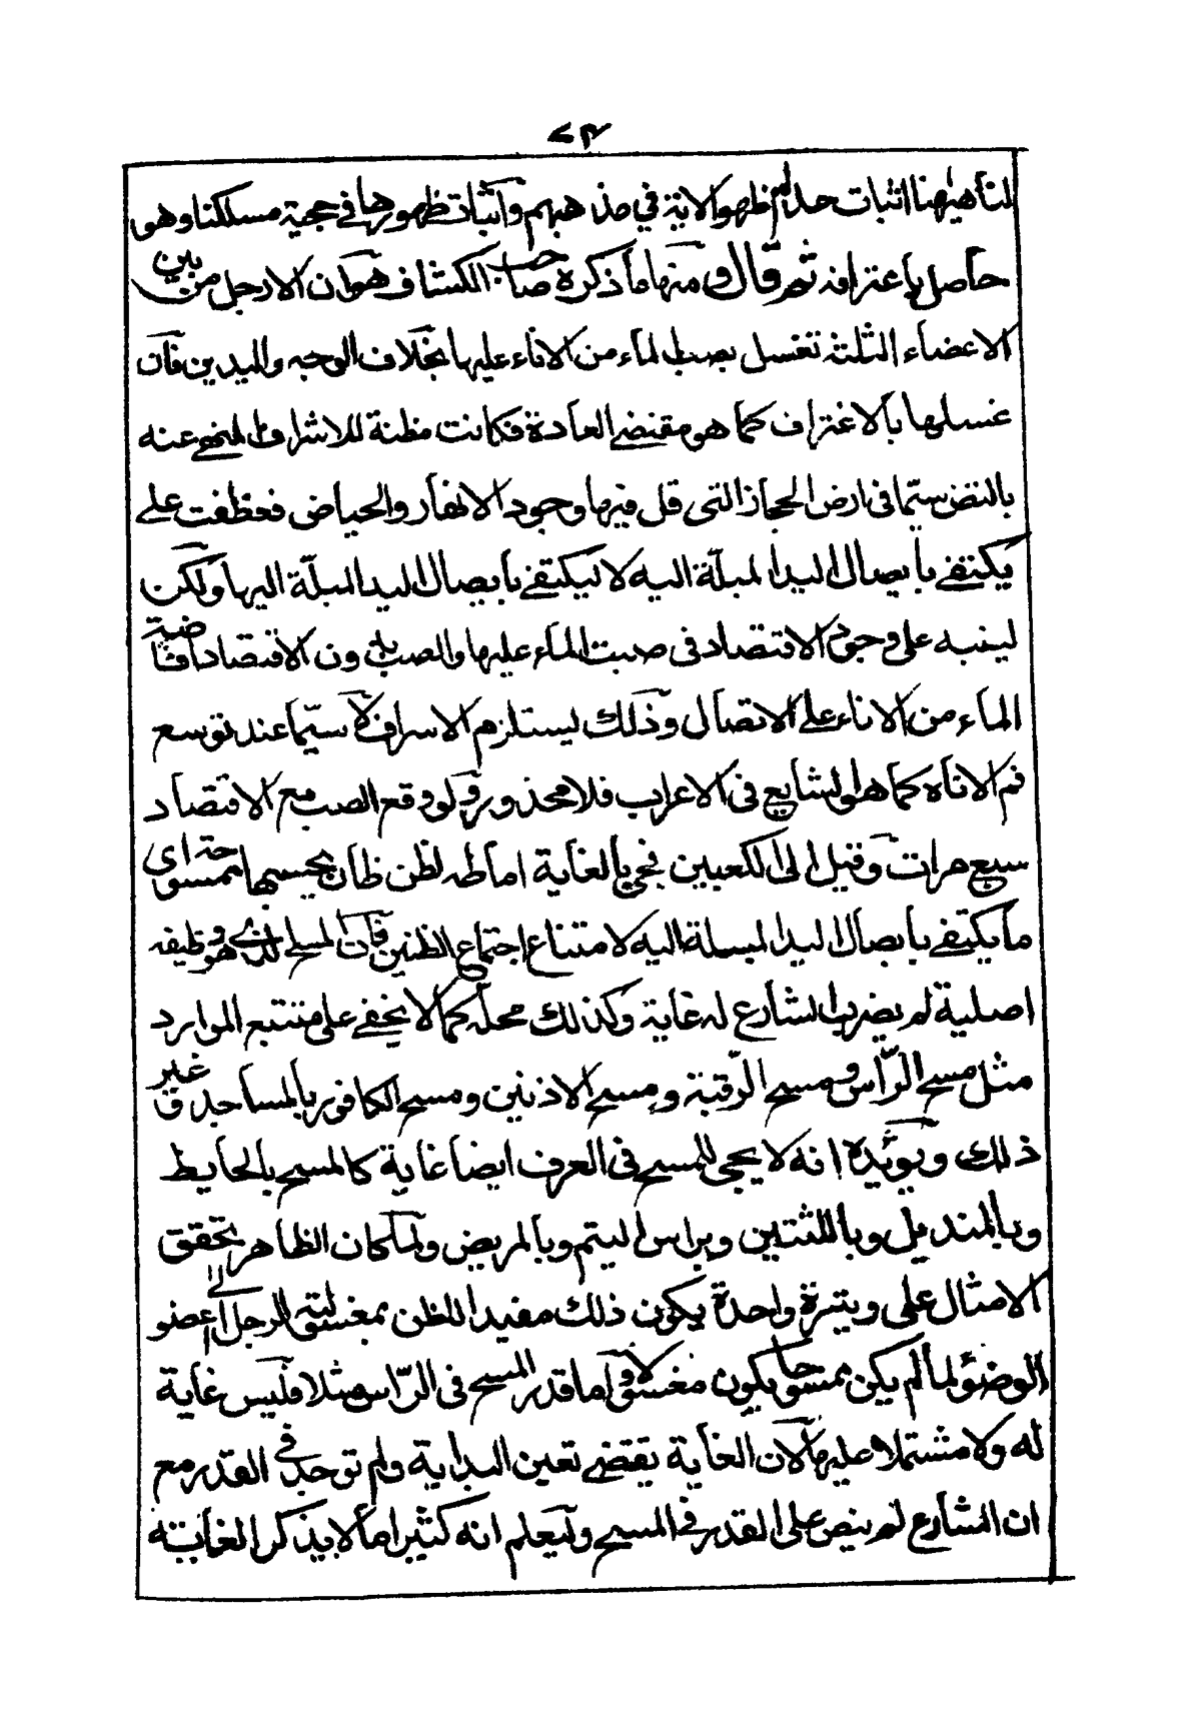 ٧٣
لنا ههنا اثبات عدم ظهور الاية في مذهبهم واثبات ظهورها في حجية مسلكنا وهو
حاصل باعترافه ثم قال ومنها ما ذكره صاحب الكشاف هو ان الارجل من بين
الاعضاء الثلثة تغسل بصب الماء من الاناء عليها بخلاف الوجه واليدين فان
غسلها بالاغتراف كما هو مقتضى العادة فكانت مظنة للاشراف المنهى عنه
بالنص سيما فى ارض الحجاز التى قل فيها وجود الانهار والحياض فعطفت على
يكتفى بايصال اليد المبلّة اليه لا ليكتفى بايصال اليد المبلّة اليها ولكن
لينبه على وجوب الاقتصاد فى صبت الماء عليها والصب بدون الاقتصاد افاضة
الماء من الاناء على الاتصال وذلك يستلزم الاسراف لا سيّما عند توسع
فم الاناء كما هو الشايع فى الاعراب فلا محذور ولو وقع الصب مع الاقتصاد
سبع مرات وقيل الى الكعبين فجئ بالغاية اماطة لظن ظان يحسبها ممسوحة اى
ما يكتفى بايصال اليد المبلة اليه لامتناع اجتماع الظنين فان المسح الذى هو وظيفه
اصلية لم يضرب الشارع له غاية وكذلك محله كما لا يخفى على متتبع الموارد
مثل مسح الرّأس ومسح الرّقبة ومسح الاذنين ومسح الكافور بالمساجد وغير
ذلك ويؤيده انه لا يجى للمسح فى العرف ايضا غاية كالمسح بالحايط
وبالمنديل وباللثتين وبراس اليتيم وبالمريض ولما كان الظاهر تحقق
الامثال على وتيرة واحدة يكون ذلك مفيدا للظن بمغسولية الرجل اى عضو
الوضؤ لما لم يكن ممسوحا يكون مغسولا واما قدر المسح فى الرّاس مثلا فليس غاية
له ولا مشتملا عليها لان الغاية يقتضى تعين البداية ولم توجد فى القدر مع
ان الشارع لم ينص على القدر فى المسح وليعلم انه كثيرا ما لا يذكر الغاية